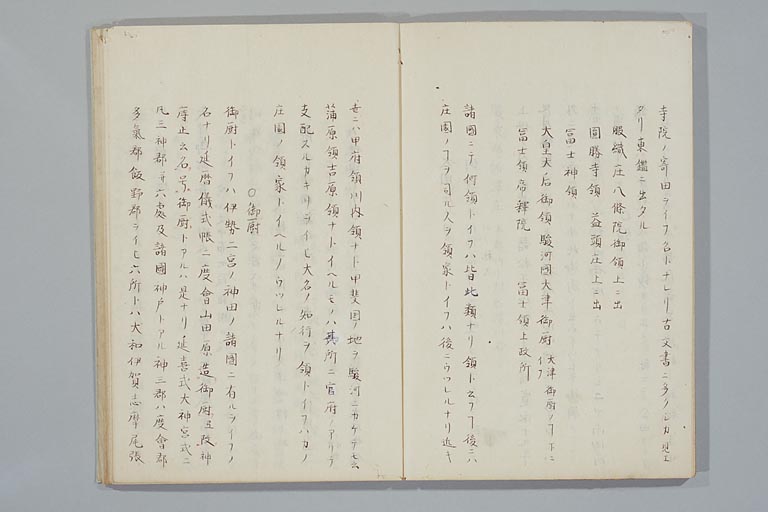 寺院ノ寄田ライフ名トナレリ古文書ニ多ノルカ見エ
タリ東鑑ニ出タル
服織庄八條院御領上ニ出
圓勝寺領　益頭庄上ニ出
冨士神領
大皇天后御領駿河國大津御厨大津御厨ノ下ニイフ
冨士領帝釋院　冨士領上政所
諸國ニテ何領トイフハ皆此類ナリ領ト云フ後ニハ
庄園ノフヲ司ル人ヲ領家トイフハ後ニウツレルナリ近キ
世ニハ甲府領川内領ナト甲斐国ノ地ヲ駿河ニカケテモ云
蒲原領吉原領ナトイヘルモノハ其所ニ官府ノアリテ
支配スルカキリライヒ大名ノ知行ヲ領トイフハカノ
庄園ノ領家トイヘルノウツレルナリ
〇御厨
御厨トイフハ伊勢二宮ノ神田ノ諸國ニ有ルライフノ
名ナリ延暦儀式帳ニ度會山田原造御厨且改神
庤止云名号御厨トアルハ是ナリ延喜式大神宮式ニ
凡三神郡并六處及諸國神戸トアル神三郡ハ度會郡
多氣郡飯野郡ライヒ六所トハ大和伊賀志摩尾張